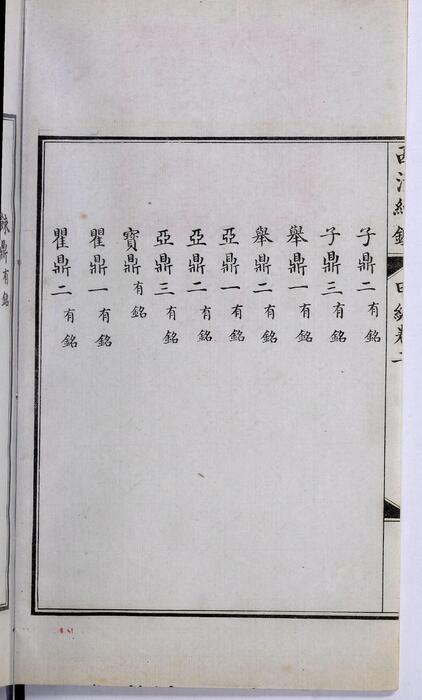 子鼎二有銘
子鼎三有銘
舉鼎一有銘
舉鼎二有銘
亞鼎一有銘
亞鼎二有銘
亞鼎三有銘
寶鼎有銘
瞿鼎一有銘
瞿鼎二有銘
鼎有銘